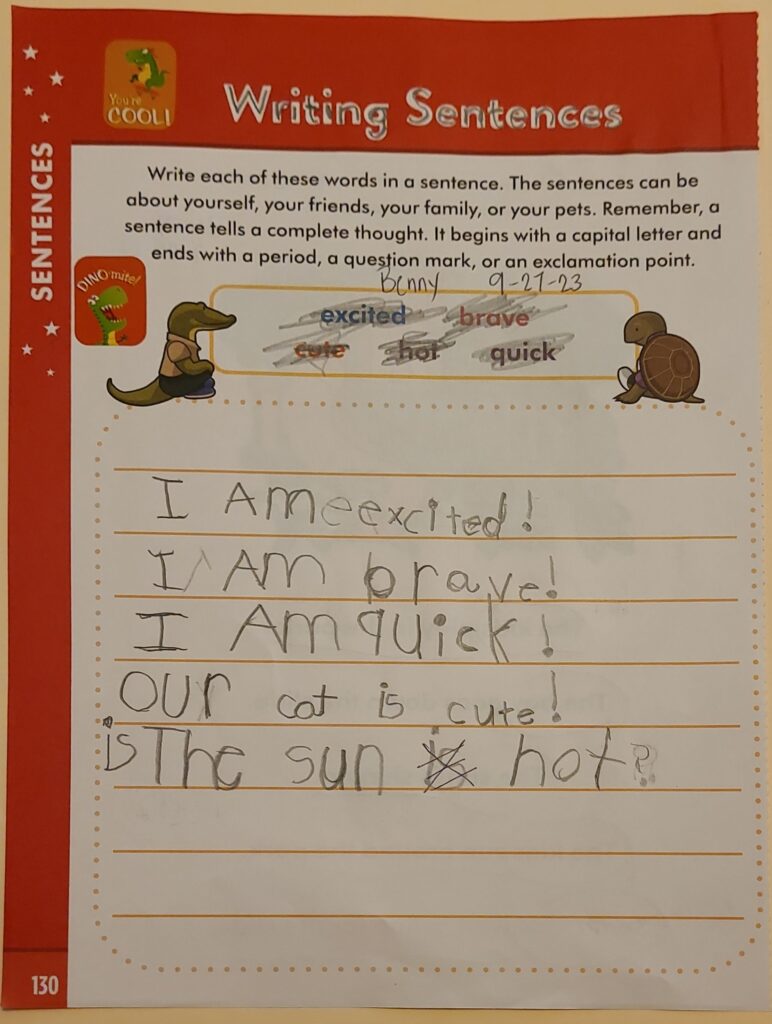 You're
COOL!
Writing Sentences
SENTENCES
Write each of these words in a sentence. The sentences can be
about yourself, your friends, your family, or your pets. Remember, a
sentence tells a complete thought. It begins with a capital letter and
ends with a period, a question mark, or an exclamation point.
DINO'mite!
Benny 9-27-23
excited brave
cute hot quick
I AM excited!
I AM brave!
I AM quick!
OUr cat is cute!
is The sun is hot?
130